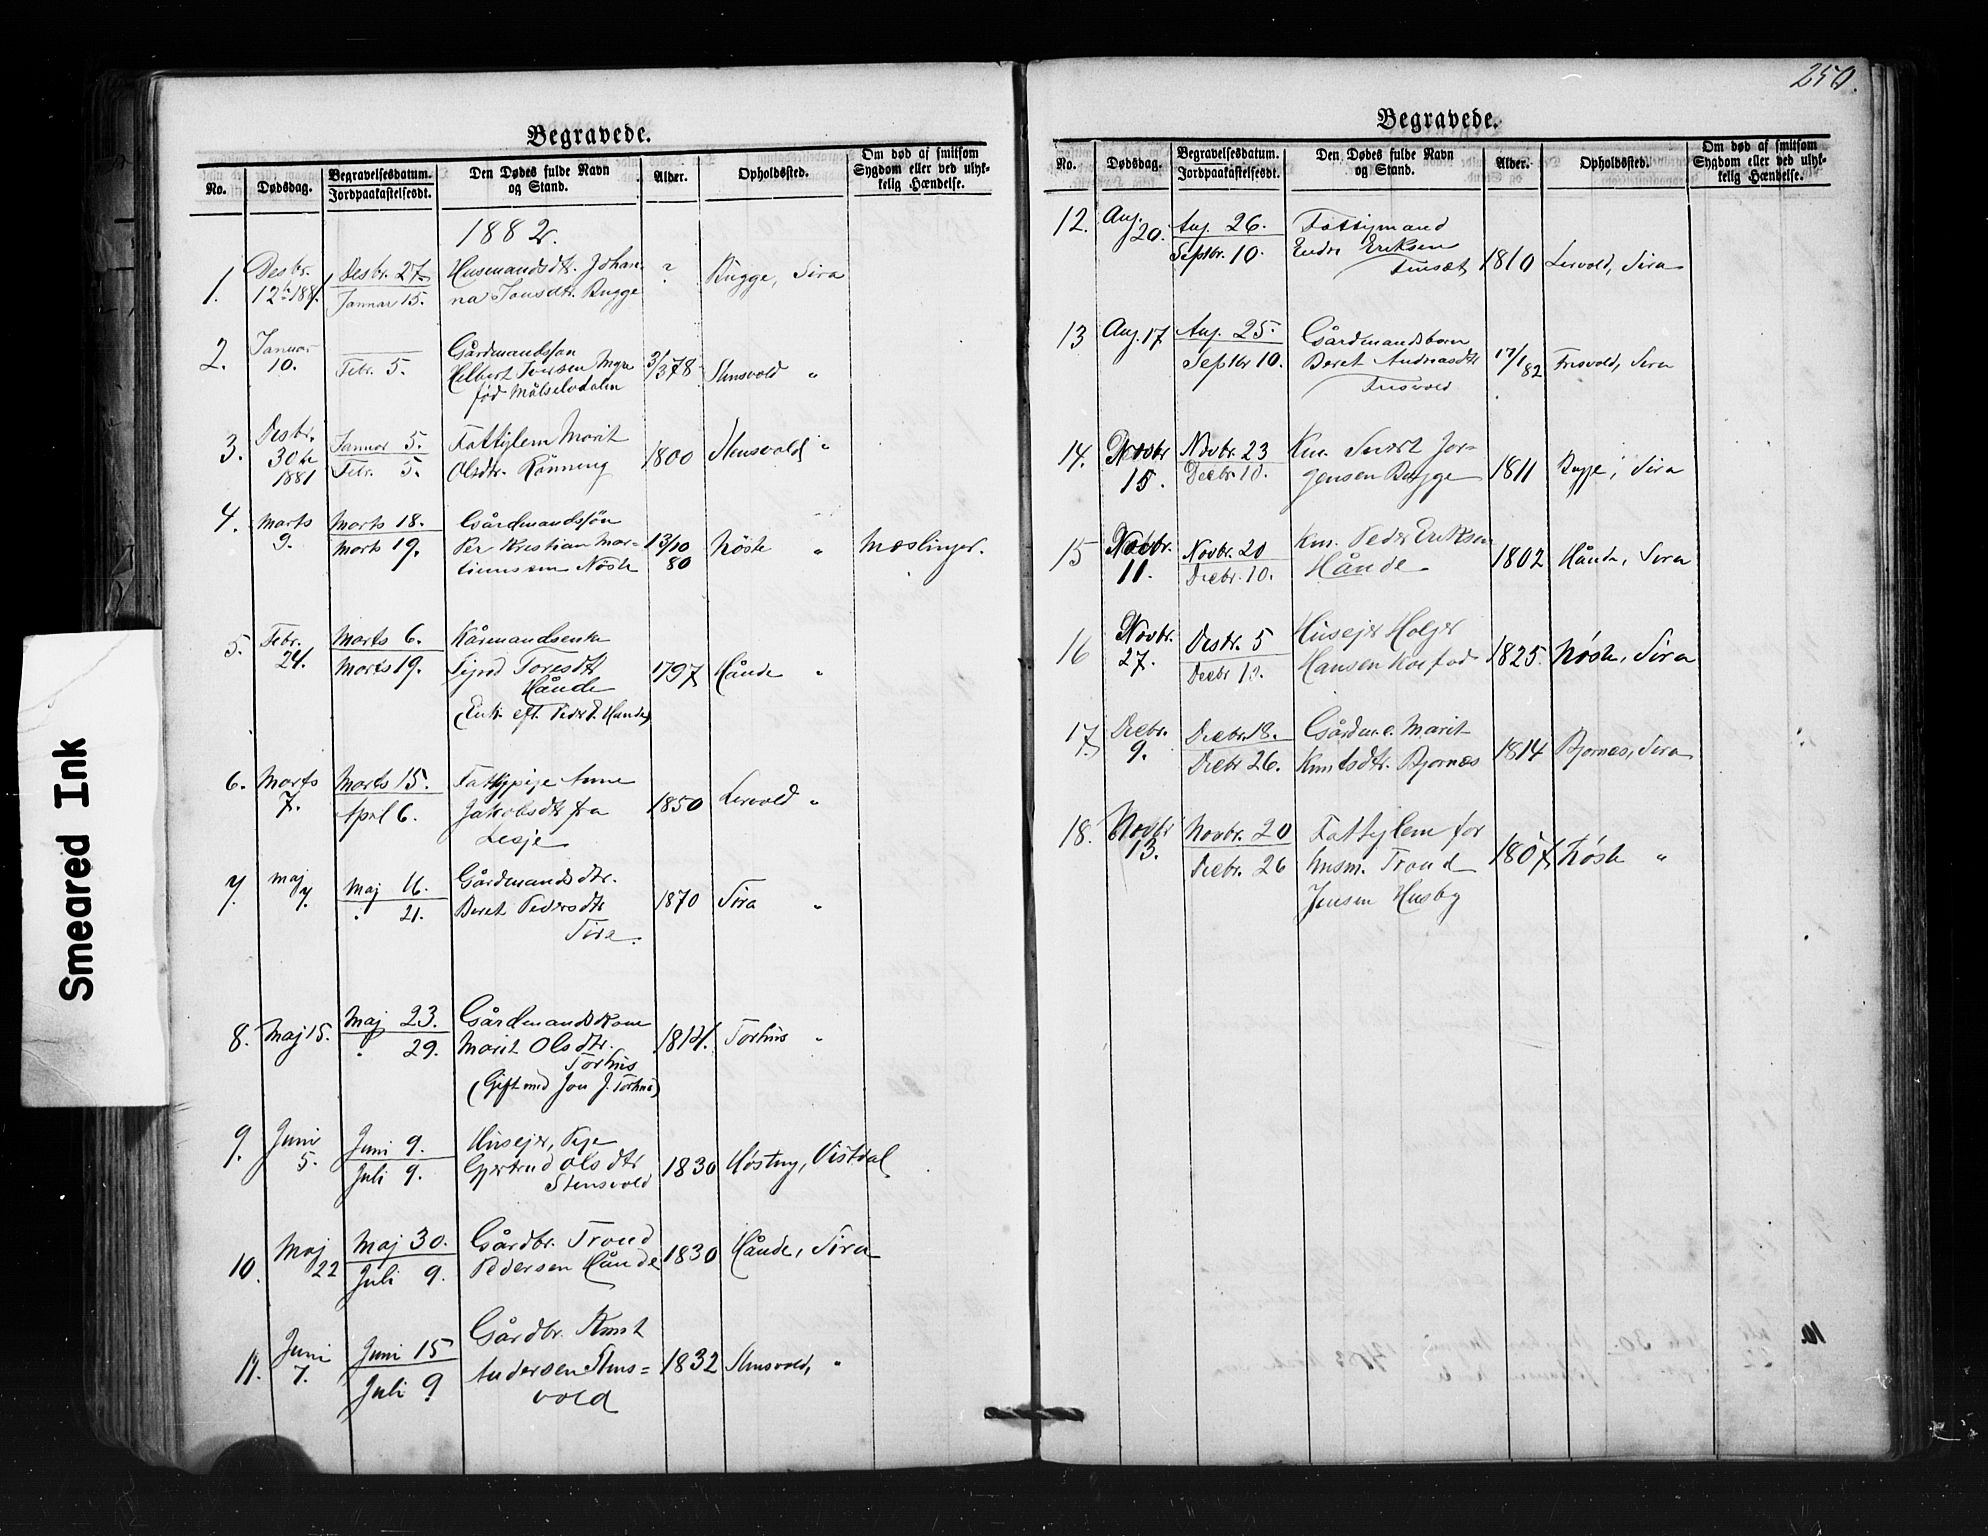 250.
Begravede.
No. Dødsdag. Begravelsesdatum. Jordpaakastelsesdt. Den Dødes fulde Navn og Stand. Alder. Opholdssted. Om død af smitsom Sygdom eller ved ulykkelig Hændelse.
1882.
1. Desbr. 12te 1881. Desbr. 27 Januar 15. Husmandsdtr. Johan-
na Jonsdtr. Bugge " Bugge, Sira
2. Januar 10. Febr. 5. Gårdmandssøn
Helbert Jonsen Myr 3/3 78 Stensvold "
fød Målselvdalen
3. Desbr. 30te 1881 Januar 5. Febr. 5. Fattiglem Marit
Olsdtr. Rønning 1800 Stensvold "
4. Marts 9. Marts 18. Marts 19. Gårdmandssøn
Per Kristian Mar- 13/10 80 Nøste " Mæslinger.
tinussen Nøste
5. Febr. 24. Marts 6. Marts 19. Kårmandsenke
Toresdtr 1797 Hånde "
Hånde
(Enk. eft. Peder E. Hande)
6. Marts 7. Marts 15. April 6. Fattigpige Anne
Jakobsdtr fra 1850 Lervold "
Lesje
7. Maj 7. Maj 16. " 21. Gårdmandsdtr.
Beret Pedersdtr 1870 Sira "
Sira.
8. Maj 15. Maj 23. " 29. Gårdmandskone
Marit Olsdtr. 1814. Torhus "
Torhus
(Gift med Jon J. Torhus)
9. Juni 5. Juni 9. Juli 9. Husejer, Pige
Gjertrud Olsdtr 1830 Høstng, Vistdal
Stensvold
10. Maj 22 Maj 30. Juli 9. Gårdbr. Trond
Pedersen Hånde 1830 Hånde, Sira
11. Juni 7. Juni 15 Juli 9 Gårdbr. Knut
Andersen Stens= 1832 Stensvold, "
vold
Begravede.
No. Dødsdag. Begravelsesdatum. Jordpaakastelsesdt. Den Dødes fulde Navn og Stand. Alder. Opholdssted. Om død af smitsom Sygdom eller ved ulykkelig Hændelse.
12. Aug. 20. Aug. 26. Septbr. 10. Fattigmand
Endre Eriksen
Finsæt 1810 Lervold, Sira
13 Aug. 17 Aug. 25. Septbr 10. Gårdmandsbarn
Beret Andreasdtr 17/1 82 Frisvold, Sira
Frisvold
14. Novbr 15. Novbr. 23 Decbr. 10. Km. Sivert Jør-
gensen Bugge 1811 Bugge, Sira
15 Novbr. 11. Novbr. 20 Decbr. 10. Km. Peder Eriksen
Hånde 1802 Hånde, Sira
16 Novbr. 27. Desbr. 5 Decbr 10. Husejer Holger
Hansen Koefod 1825. Nøste, Sira
17. Decbr. 9. Decbr. 18. Decbr 26. Gårdm.e. Marit
Knutsdtr. Bjørnes 1814 Bjørnes, Sira
18. Novbr 13. Novbr. 20 Decbr. 26 Fattiglem for
husm. Trond 1807 Nøste "
Jensen Husby
10.
Smeared Ink